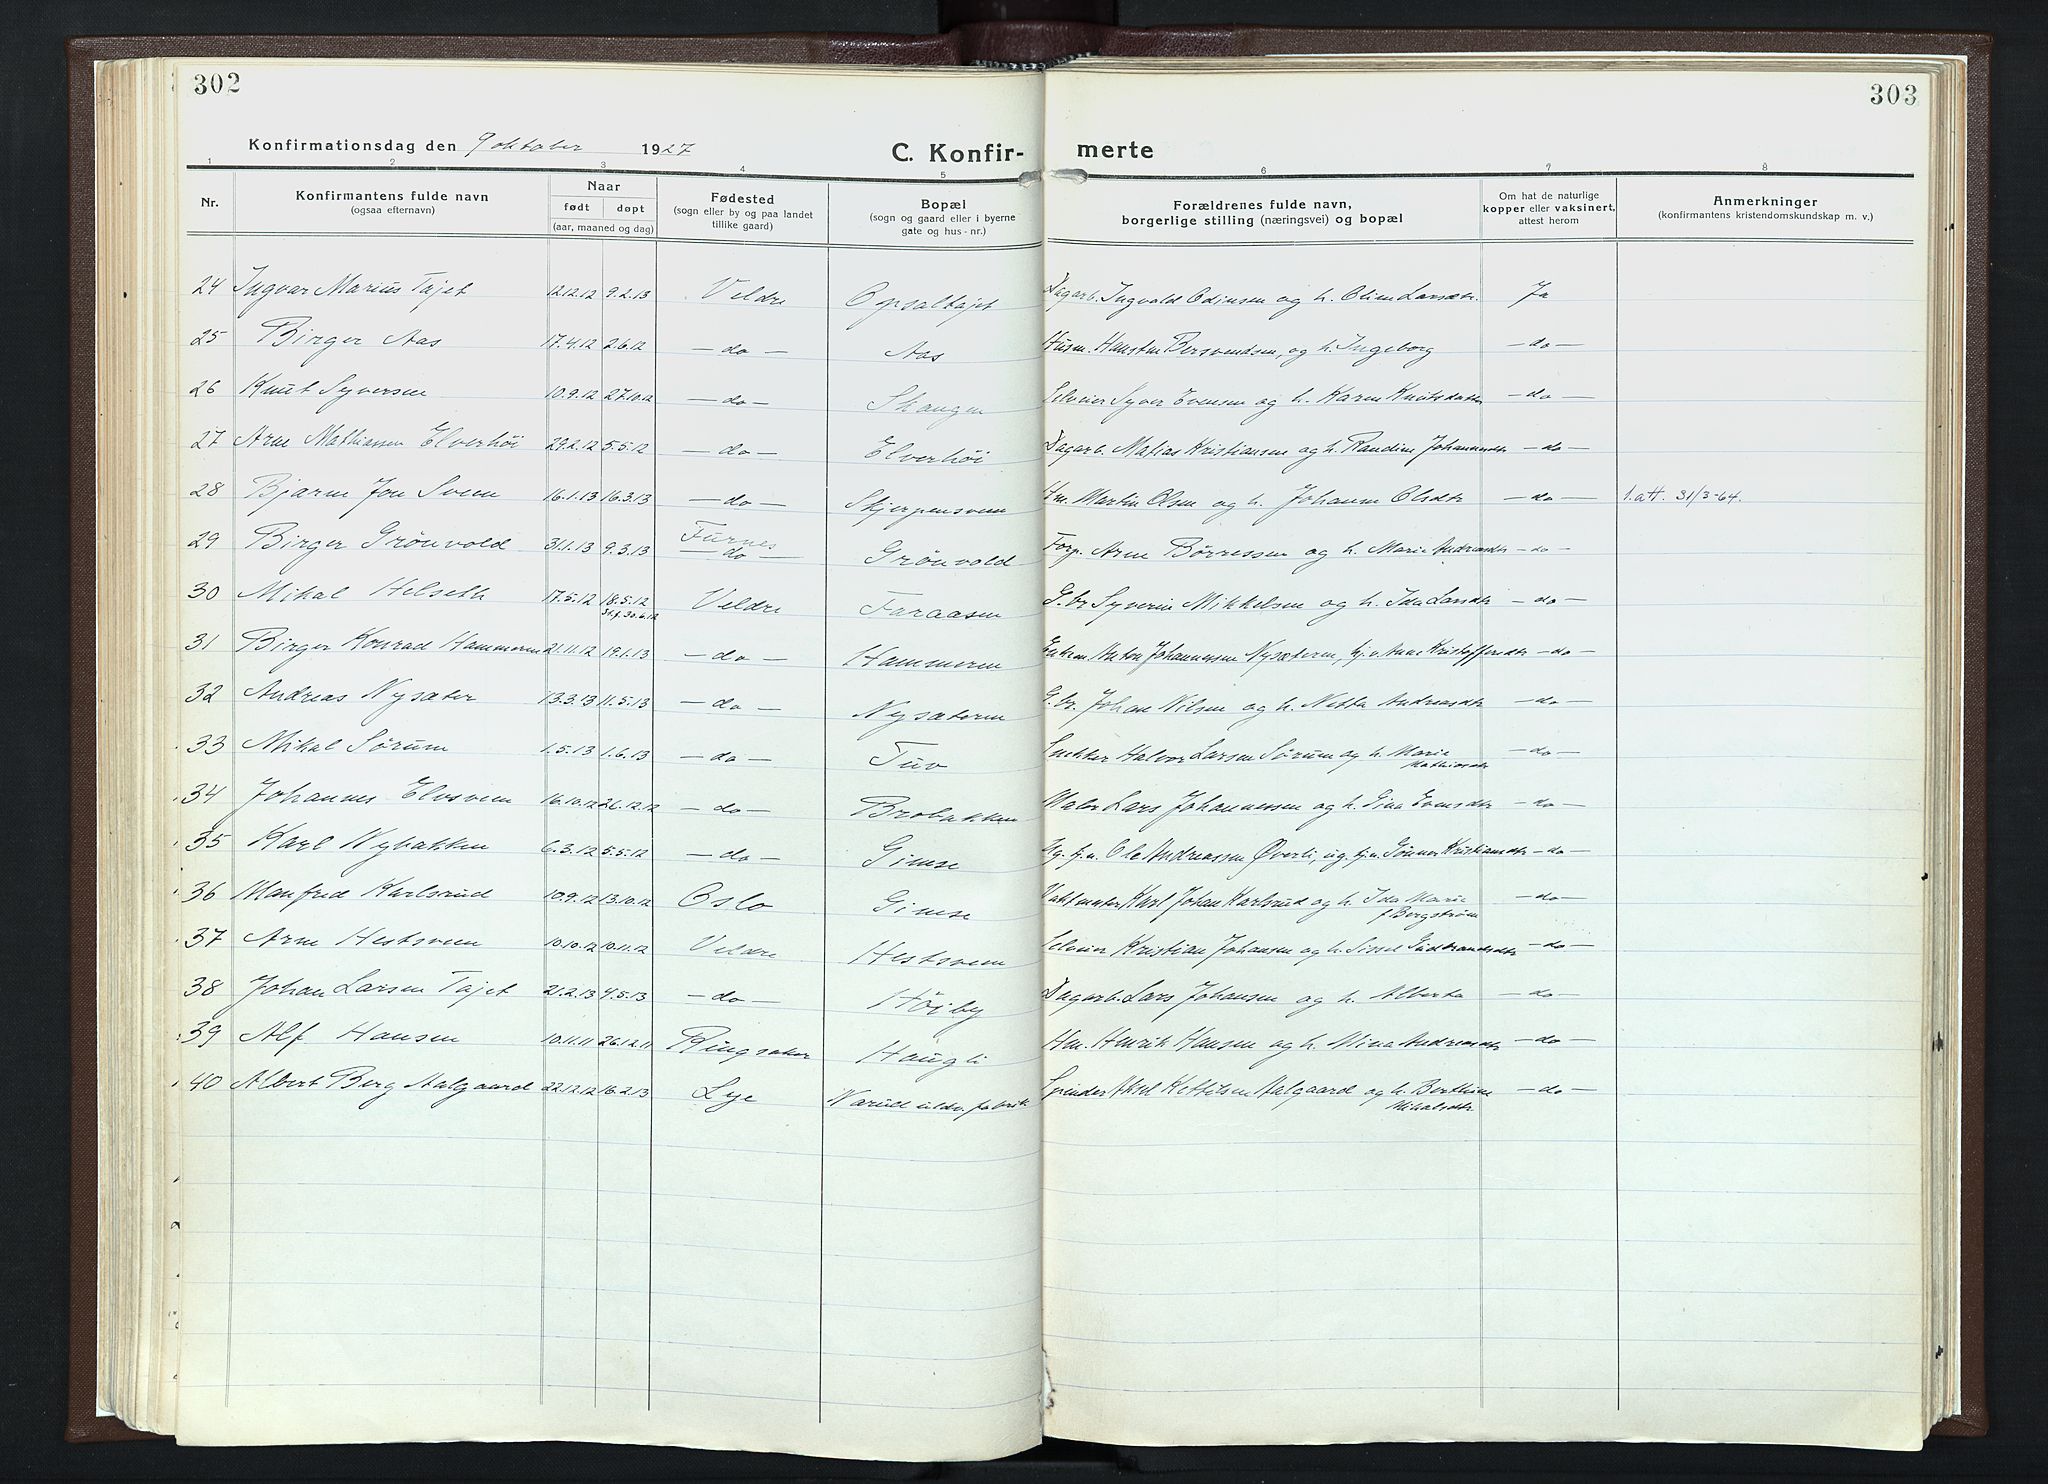 302
303
Konfirmationsdag den 9 oktober 1927
C. Konfir-
merte
1 2 3 4 5 6 7 8
Nr.
Konfirmantens fulde navn
(ogsaa efternavn)
Naar
født døpt
(aar, maaned og dag)
Fødested
(sogn eller by og paa landet
tillike gaard)
Bopæl
(sogn og gaard eller i byerne
gate og hus-nr.)
Forældrenes fulde navn,
borgerlige stilling (næringsvei) og bopæl
Om hat de naturlige
kopper eller vaksinert,
attest herom
Anmerkninger
(konfirmantens kristendomskundskap m. v.)
24 Ingvar Marius Tajet 12.12.12 9.2.13 Veldre Opsaltajet Dagarb. Ingvald Odinsen og h. Oline Larsdtr. Ja
25 Birger Aas 17.4.12 2.6.12 — do — Aas Husm. Bersvendsen, og h. Ingeborg — do —
26 Knut Syversen 10.9.12 27.10.12 — do — Skaugen Selveier Syver Evensen og h. Karen Knutsdatter — do —
27 Arne Mathiassen Elverhöi 29.2.12 5.5.12 — do — Elverhöi Dagarb. Matias Kristiansen og h. Randine Johannesdtr — do —
28 Bjarne Jon Sveen 16.1.13 16.3.13 — do — Skjerpensveen Hm. Martin Olsen og h. Johanne Olsdtr — do — 1. att. 31/3-64.
29 Birger Grönvold 31.1.13 9.3.13 Furnes
— do — Grönvold Forp. Arne Börressen og h. Marie Andreasdtr — do —
30 Mikal Helseth 17.5.12 18.5.12 Veldre Faraasen G.br Syverin Mikkelsen og h. Ida Larsdtr — do —
st.f. 30.6.12
31 Birger Konrad Hammeren 21.11.12 19.1.13 — do — Hammeren Enkem. Anton Johannessen Nysæteren, Anne Kristoffersdtr — do —
32 Andreas Nysæter 13.3.13 11.5.13 — do — Nysæteren G.br. Johan Nilsen og h. Netta Andreasdtr — do —
33 Mikal Sørum 1.5.13 1.6.13 — do — Tuv Snekker Halvor Larsen Sørum og h. Marie — do —
Mathiasdtr
34 Johannes Elvsveen 16.10.12 26.12.12 — do — Brobakken Maler Lars Johannessen og h. Gina Evensdtr — do —
35 Karl Nybakken 6.3.12 5.5.12 — do — Gimse Ole Andreassen Øverli, Kristiansdtr — do —
36 Manfred Karlsrud 10.9.12 13.10.12 Oslo Gimse Vaktmester Karl Johan Karlsrud og h. Ida Marie — do —
f. Bergstrøm
37 Arne Hestsveen 10.10.12 10.11.12 Veldre Hestsveen Selveier Kristian Johansen og h. Sissel Gudbrandsdtr — do —
38 Johan Larsen Tajet 21.2.13 4.5.13 — do — Höiby Dagarb. Lars Johansen og h. Alberta — do —
39 Alf Hansen 10.11.11 26.12.11 Ringsaker Haugli Hm. Henrik Hansen og h. Mina Andreasdtr — do —
40 Albert Berg Aalgaard 22.12.12 16.2.13 Lye Narud uldv. fabrik Spinder Aksel Kettilsen Aalgaard og h. Berthine — do —
Mikalsdtr